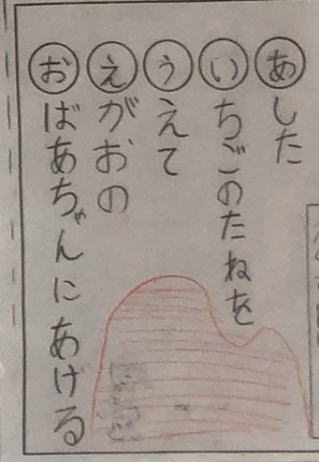 あした
いちごのたねを
うえて
えがおの
おばあちゃんにあげる